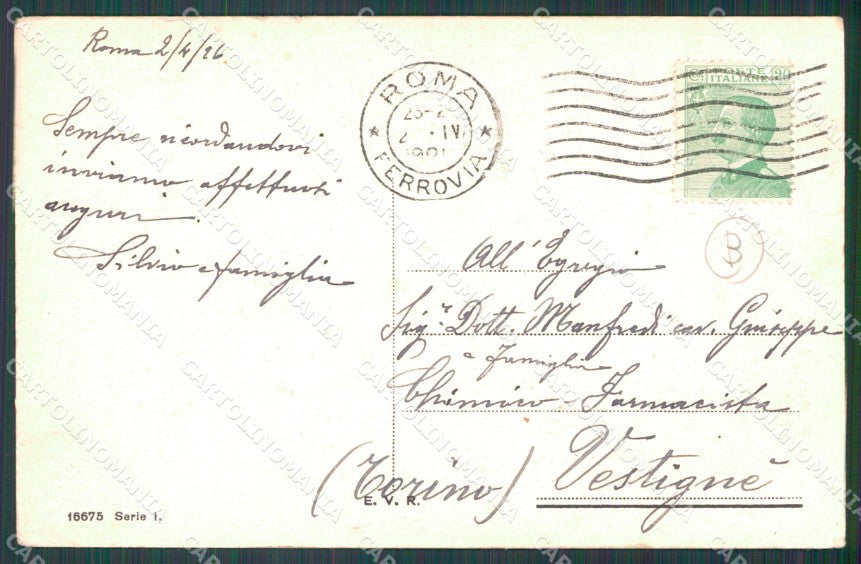 Roma 2/4/26
Sempre ricordandovi
inviamo affettuosi
auguri.
Silvio e famiglia
ROMA
FERROVIA
POSTE
ITALIANE
All' Egregio
Sig.r Dott. Manfredi cav. Giuseppe
e famiglia
Chimico - Farmacista
Vestignè
(Torino)
E. V. R.
16675 Serie 1.
B
CARTOLINOMANIA